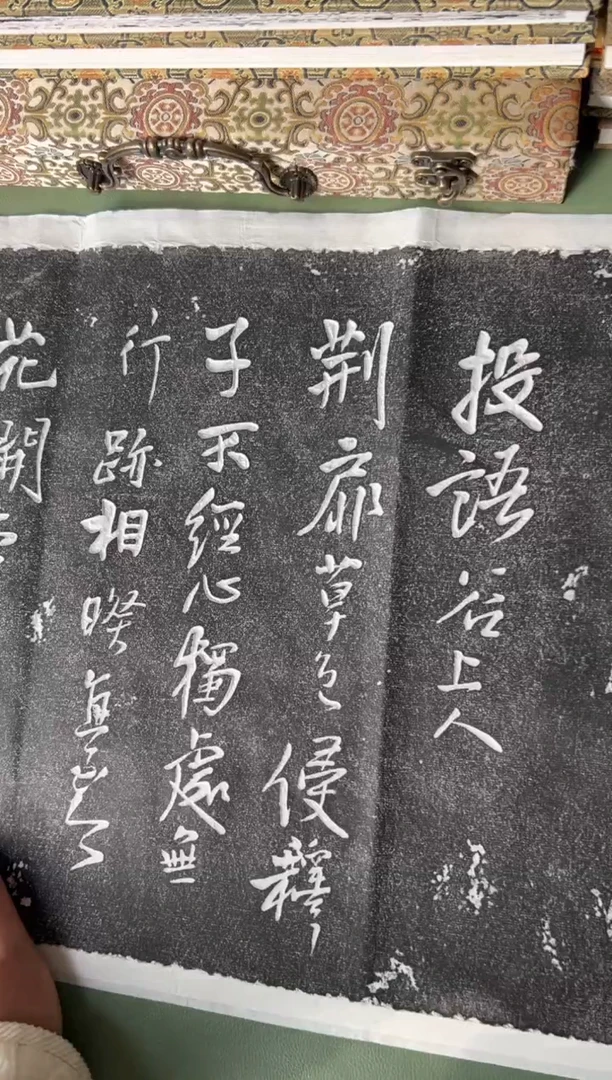 投語谷上人
荆扉草色侵釋
子不經心獨處無
行跡相暌
花開